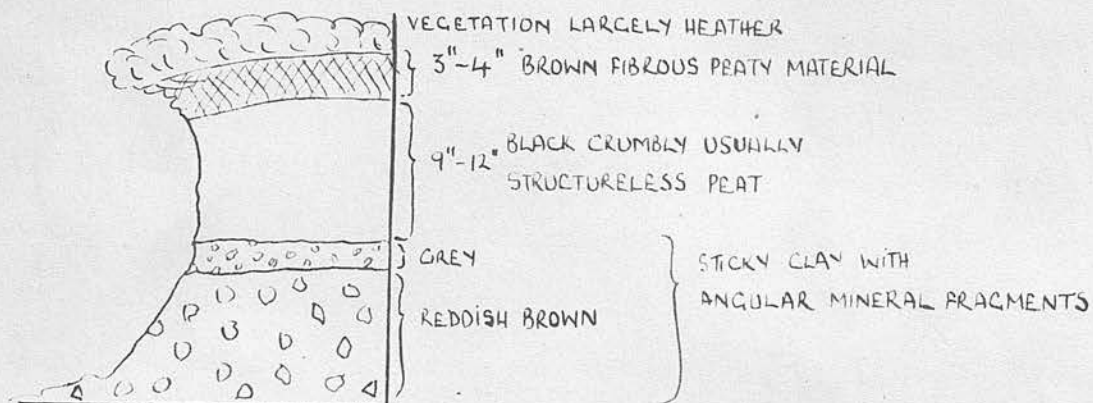 VEGETATION LARGELY HEATHER
3"-4" BROWN FIBROUS PEATY MATERIAL
9"-12" BLACK CRUMBLY USUALLY
STRUCTURELESS PEAT
GREY
REDDISH BROWN
STICKY CLAY WITH
ANGULAR MINERAL FRAGMENTS